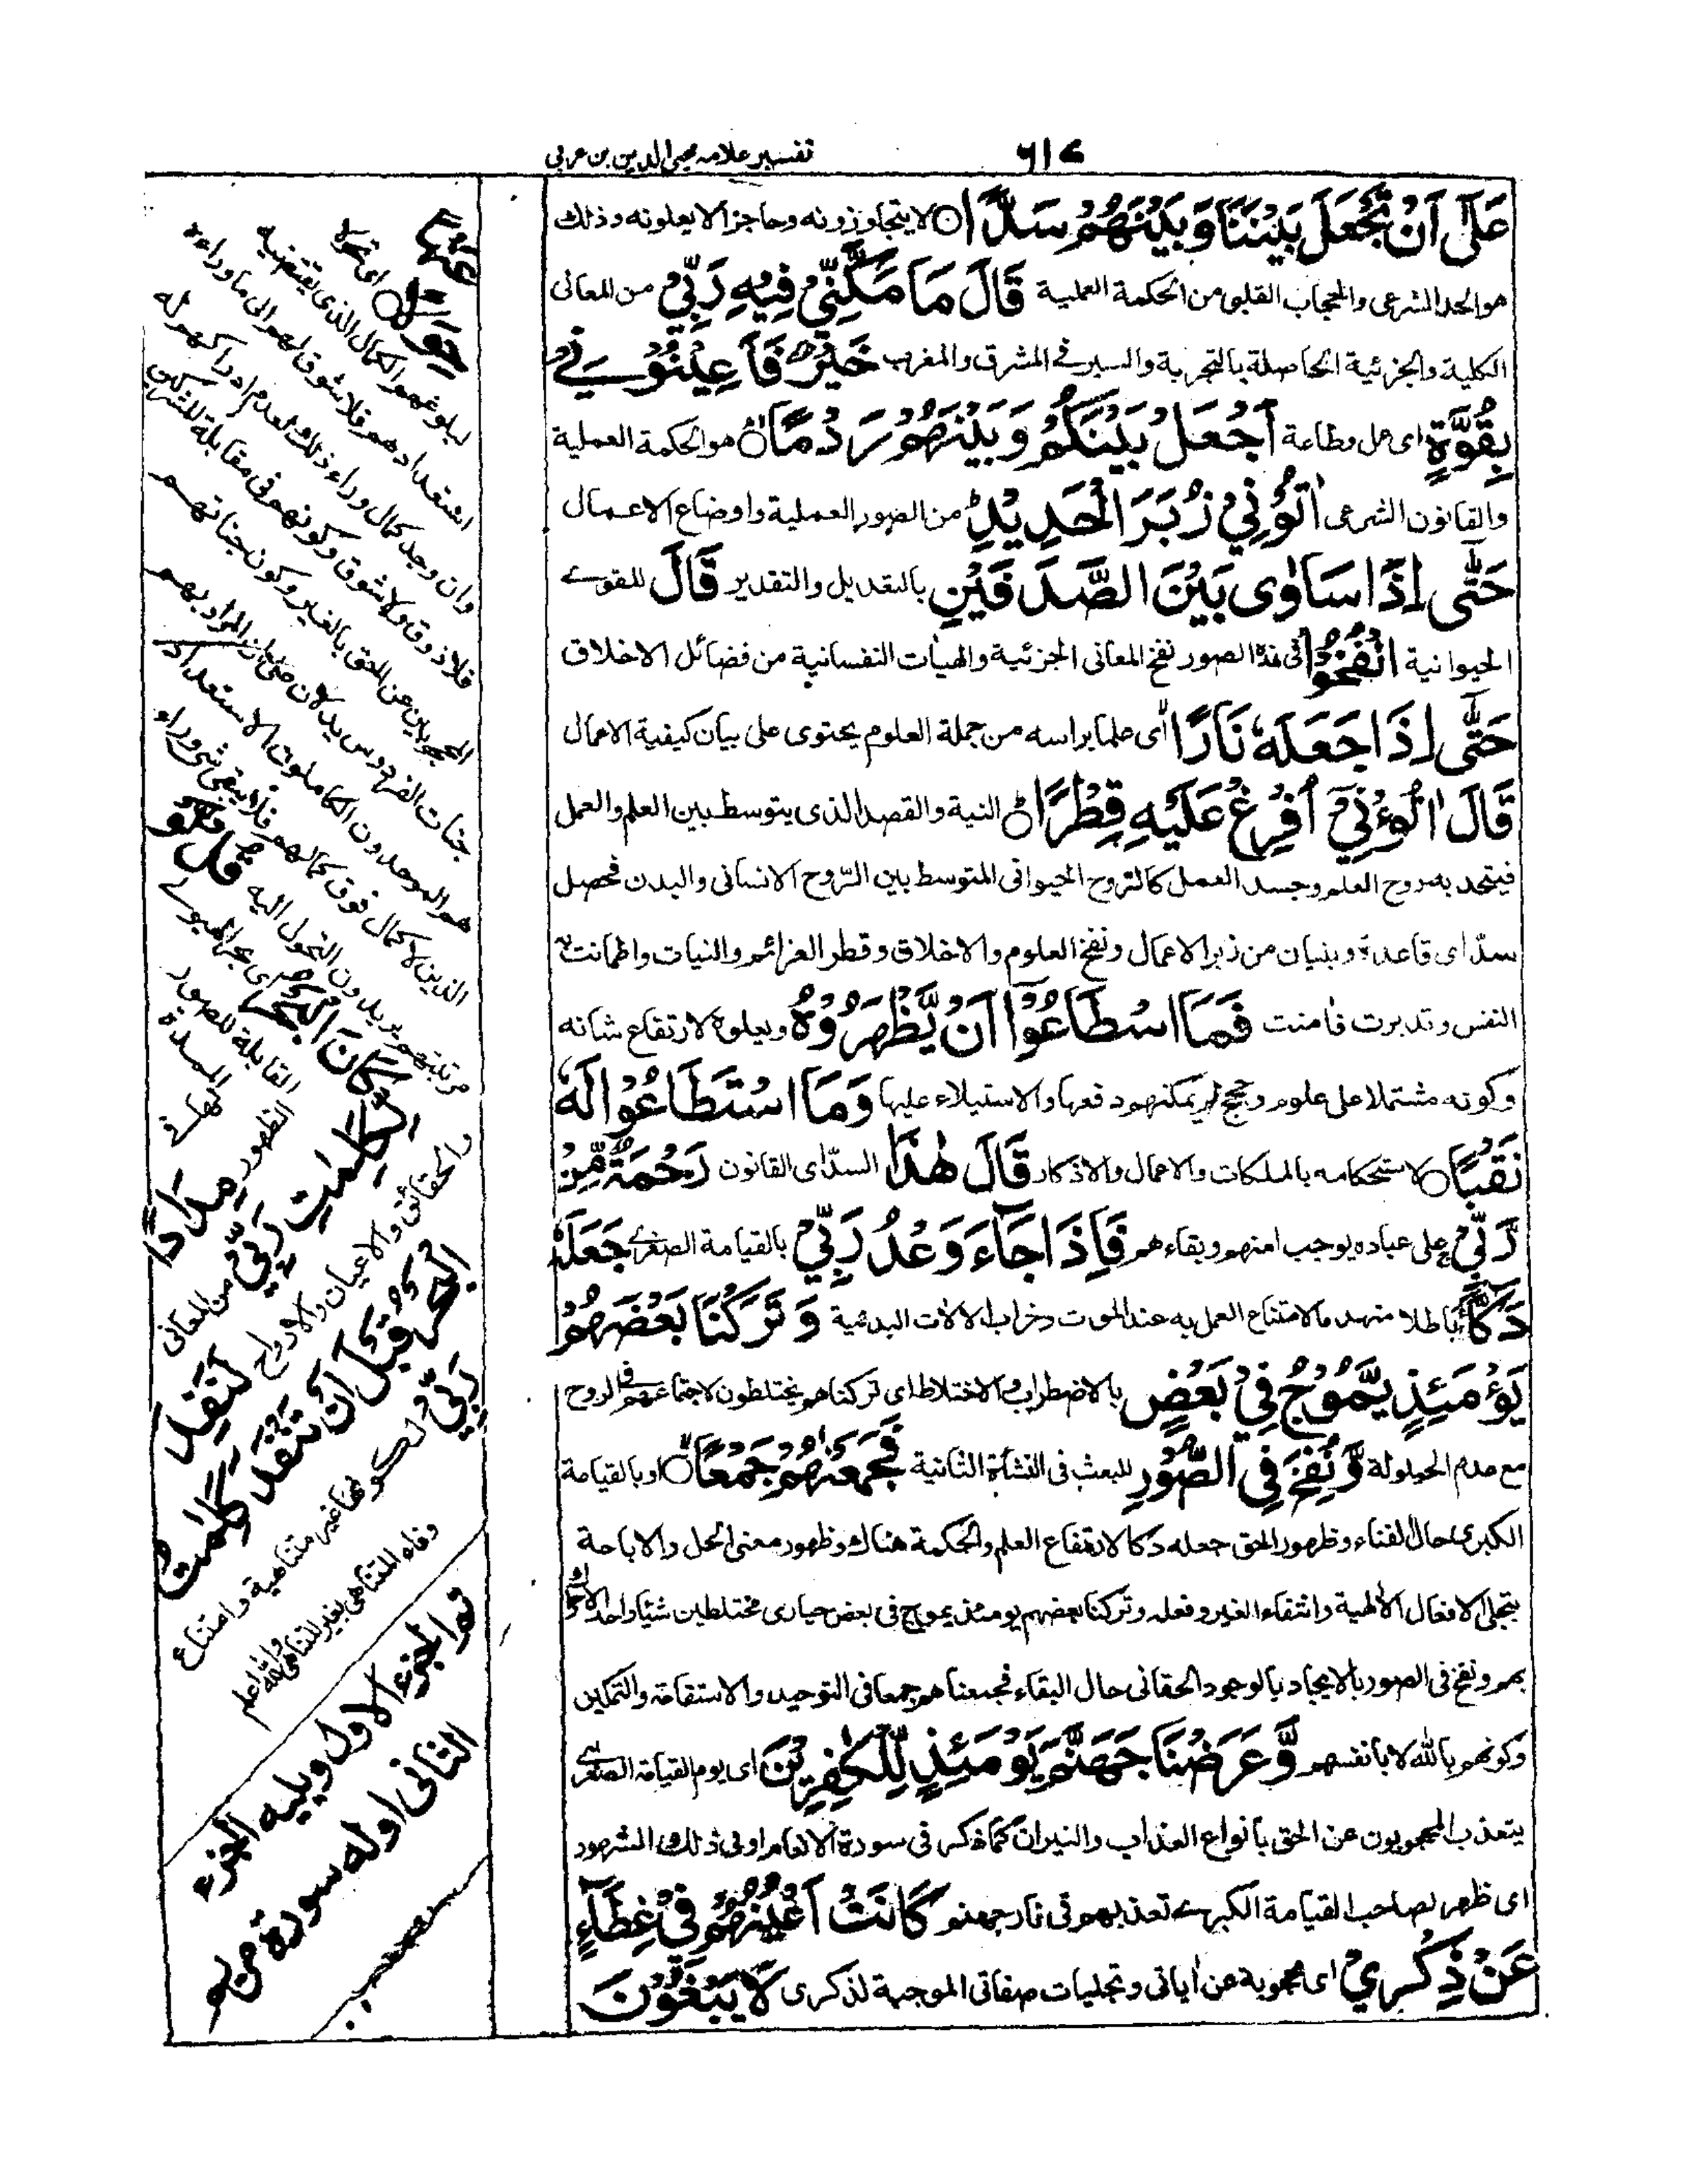 تفسير علامه محيي الدين بن عربي
٤١٧
عَلَىٰٓ اَنْ تَجْعَلَ بَيْنَنَا وَبَيْنَهُمْ سَدًّا ○ لا يتجاوزونه وحاجزا لا يعلونه وذلك
هو الحد الشرعى والحجاب القلبى من الحكمة العملية قَالَ مَا مَكَّنِّيْ فِيْهِ رَبِّيْ من المعانى
الكلية والجزئية الحاصلة بالتجربة والسير فى المشرق والمغرب خَيْرٌ فَاَعِيْنُوْنِيْ
بِقُوَّةٍ اى عمل وطاعة اَجْعَلْ بَيْنَكُمْ وَبَيْنَهُمْ رَدْمًا ○ هو الحكمة العملية
والقانون الشرعى اٰتُوْنِيْ زُبَرَ الْحَدِيْدِ من الصور العملية واوضاع الاعمال
حَتّٰٓى اِذَا سَاوٰى بَيْنَ الصَّدَفَيْنِ بالتعديل والتقدير قَالَ للقوى
الحيوانية انْفُخُوْا فى هذه الصور نفخ المعانى الجزئية والهيأت النفسانية من فضائل الاخلاق
حَتّٰٓى اِذَا جَعَلَهٗ نَارًا اى علما براسه من جملة العلوم يحتوى على بيان كيفية الاعمال
قَالَ اٰتُوْنِيْٓ اُفْرِغْ عَلَيْهِ قِطْرًا ○ النية والقصد الذى يتوسط بين العلم والعمل
فيتحد به روح العلم وجسد العمل كالروح الحيوانى المتوسط بين الروح الانسانى والبدن فحصل
سدّا اى قاعدة وبنيان من زبر الاعمال ونفخ العلوم والاخلاق وقطر العزائم والنيات واطمانت به
النفس وتدبرت فامنت فَمَا اسْطَاعُوْٓا اَنْ يَّظْهَرُوْهُ ويعلوه لارتفاع شانه
وكونه مشتملا على علوم وحجج لم يمكنهم دفعها والاستيلاء عليها وَمَا اسْتَطَاعُوْا لَهٗ
نَقْبًا ○ لاستحكامه بالملكات والاعمال والاذكار قَالَ هٰذَا السدّ اى القانون رَحْمَةٌ مِّنْ
رَّبِّيْ على عباده يوجب امنهم وبقاءهم فَاِذَا جَآءَ وَعْدُ رَبِّيْ بالقيامة الصغرى جَعَلَهٗ
دَكَّآءَ باطلا منهدما لامتناع العمل به عند الموت وخراب الالات البدنية وَتَرَكْنَا بَعْضَهُمْ
يَوْمَئِذٍ يَّمُوْجُ فِيْ بَعْضٍ بالاضطراب والاختلاط اى تركناهم يختلطون لاجتماعهم فى الروح
مع عدم الحيلولة وَّنُفِخَ فِى الصُّوْرِ للبعث فى النشاة الثانية فَجَمَعْنٰهُمْ جَمْعًا ○ او بالقيامة
الكبرى حال الفناء وظهور الحق جعله دكا لارتفاع العلم والحكمة هناك وظهور معنى الحل والاباحة
بتجلى الافعال الالهية وانتفاء الغير وفعله وتركنا بعضهم يومئذ يموج فى بعض حيارى مختلطين شيئا واحدا لا
بهم ونفخ فى الصور بالايجاد بالوجود الحقانى حال البقاء فجمعناهم جمعا فى التوحيد والاستقامة والتمكين
وكونهم بالله لا بانفسهم وَّعَرَضْنَا جَهَنَّمَ يَوْمَئِذٍ لِّلْكٰفِرِيْنَ اى يوم القيامة الصغرى
يتعذب المحجوبون عن الحق بانواع العذاب والنيران كما ذكر فى سورة الانعام او فى ذلك الشهود
اى ظهر لصاحب القيامة الكبرى تعذبهم فى نار جهنم كَانَتْ اَعْيُنُهُمْ فِيْ غِطَآءٍ
عَنْ ذِكْرِيْ اى محجوبة عن اياتى وتجليات صفاتى الموجبة لذكرى لَا يَبْغُوْنَ
عَنْهَا
حِوَلًا ○ اى تحولا
لبلوغهم الكمال الذى يقتضيه
استعدادهم فلا شوق لهم الى ما وراءه
وان وجد كمال وراء ذلك لعدم ادراكهم له
فلا ذوق ولا شوق وكونهم فى مقابلة المشركين
المحجوبين عن الحق بالغير وكون جناتهم
جنات الفردوس يدلان على ان المراد بهم
هم الموحدون الكاملون الاستعداد
الذين لا كمال فوق كمالهم فلا يبقى شئ وراء
مرتبتهم يريدون التحول اليه قُلْ لَّوْ
كَانَ الْبَحْرُ اى بحر الهيولى
القابلة للصور الممدة
لها فى الظهور مِدَادًا
لِّكَلِمٰتِ رَبِّيْ من المعانى
والحقائق والاعيان والارواح لَنَفِدَ
الْبَحْرُ قَبْلَ اَنْ تَنْفَدَ كَلِمٰتُ
رَبِّيْ لكونها غير متناهية وامتناع
وفاء المتناهى بغير المتناهى والله اعلم
تم الجزء الاول ويليه الجزء
الثانى اوله سورة مريم